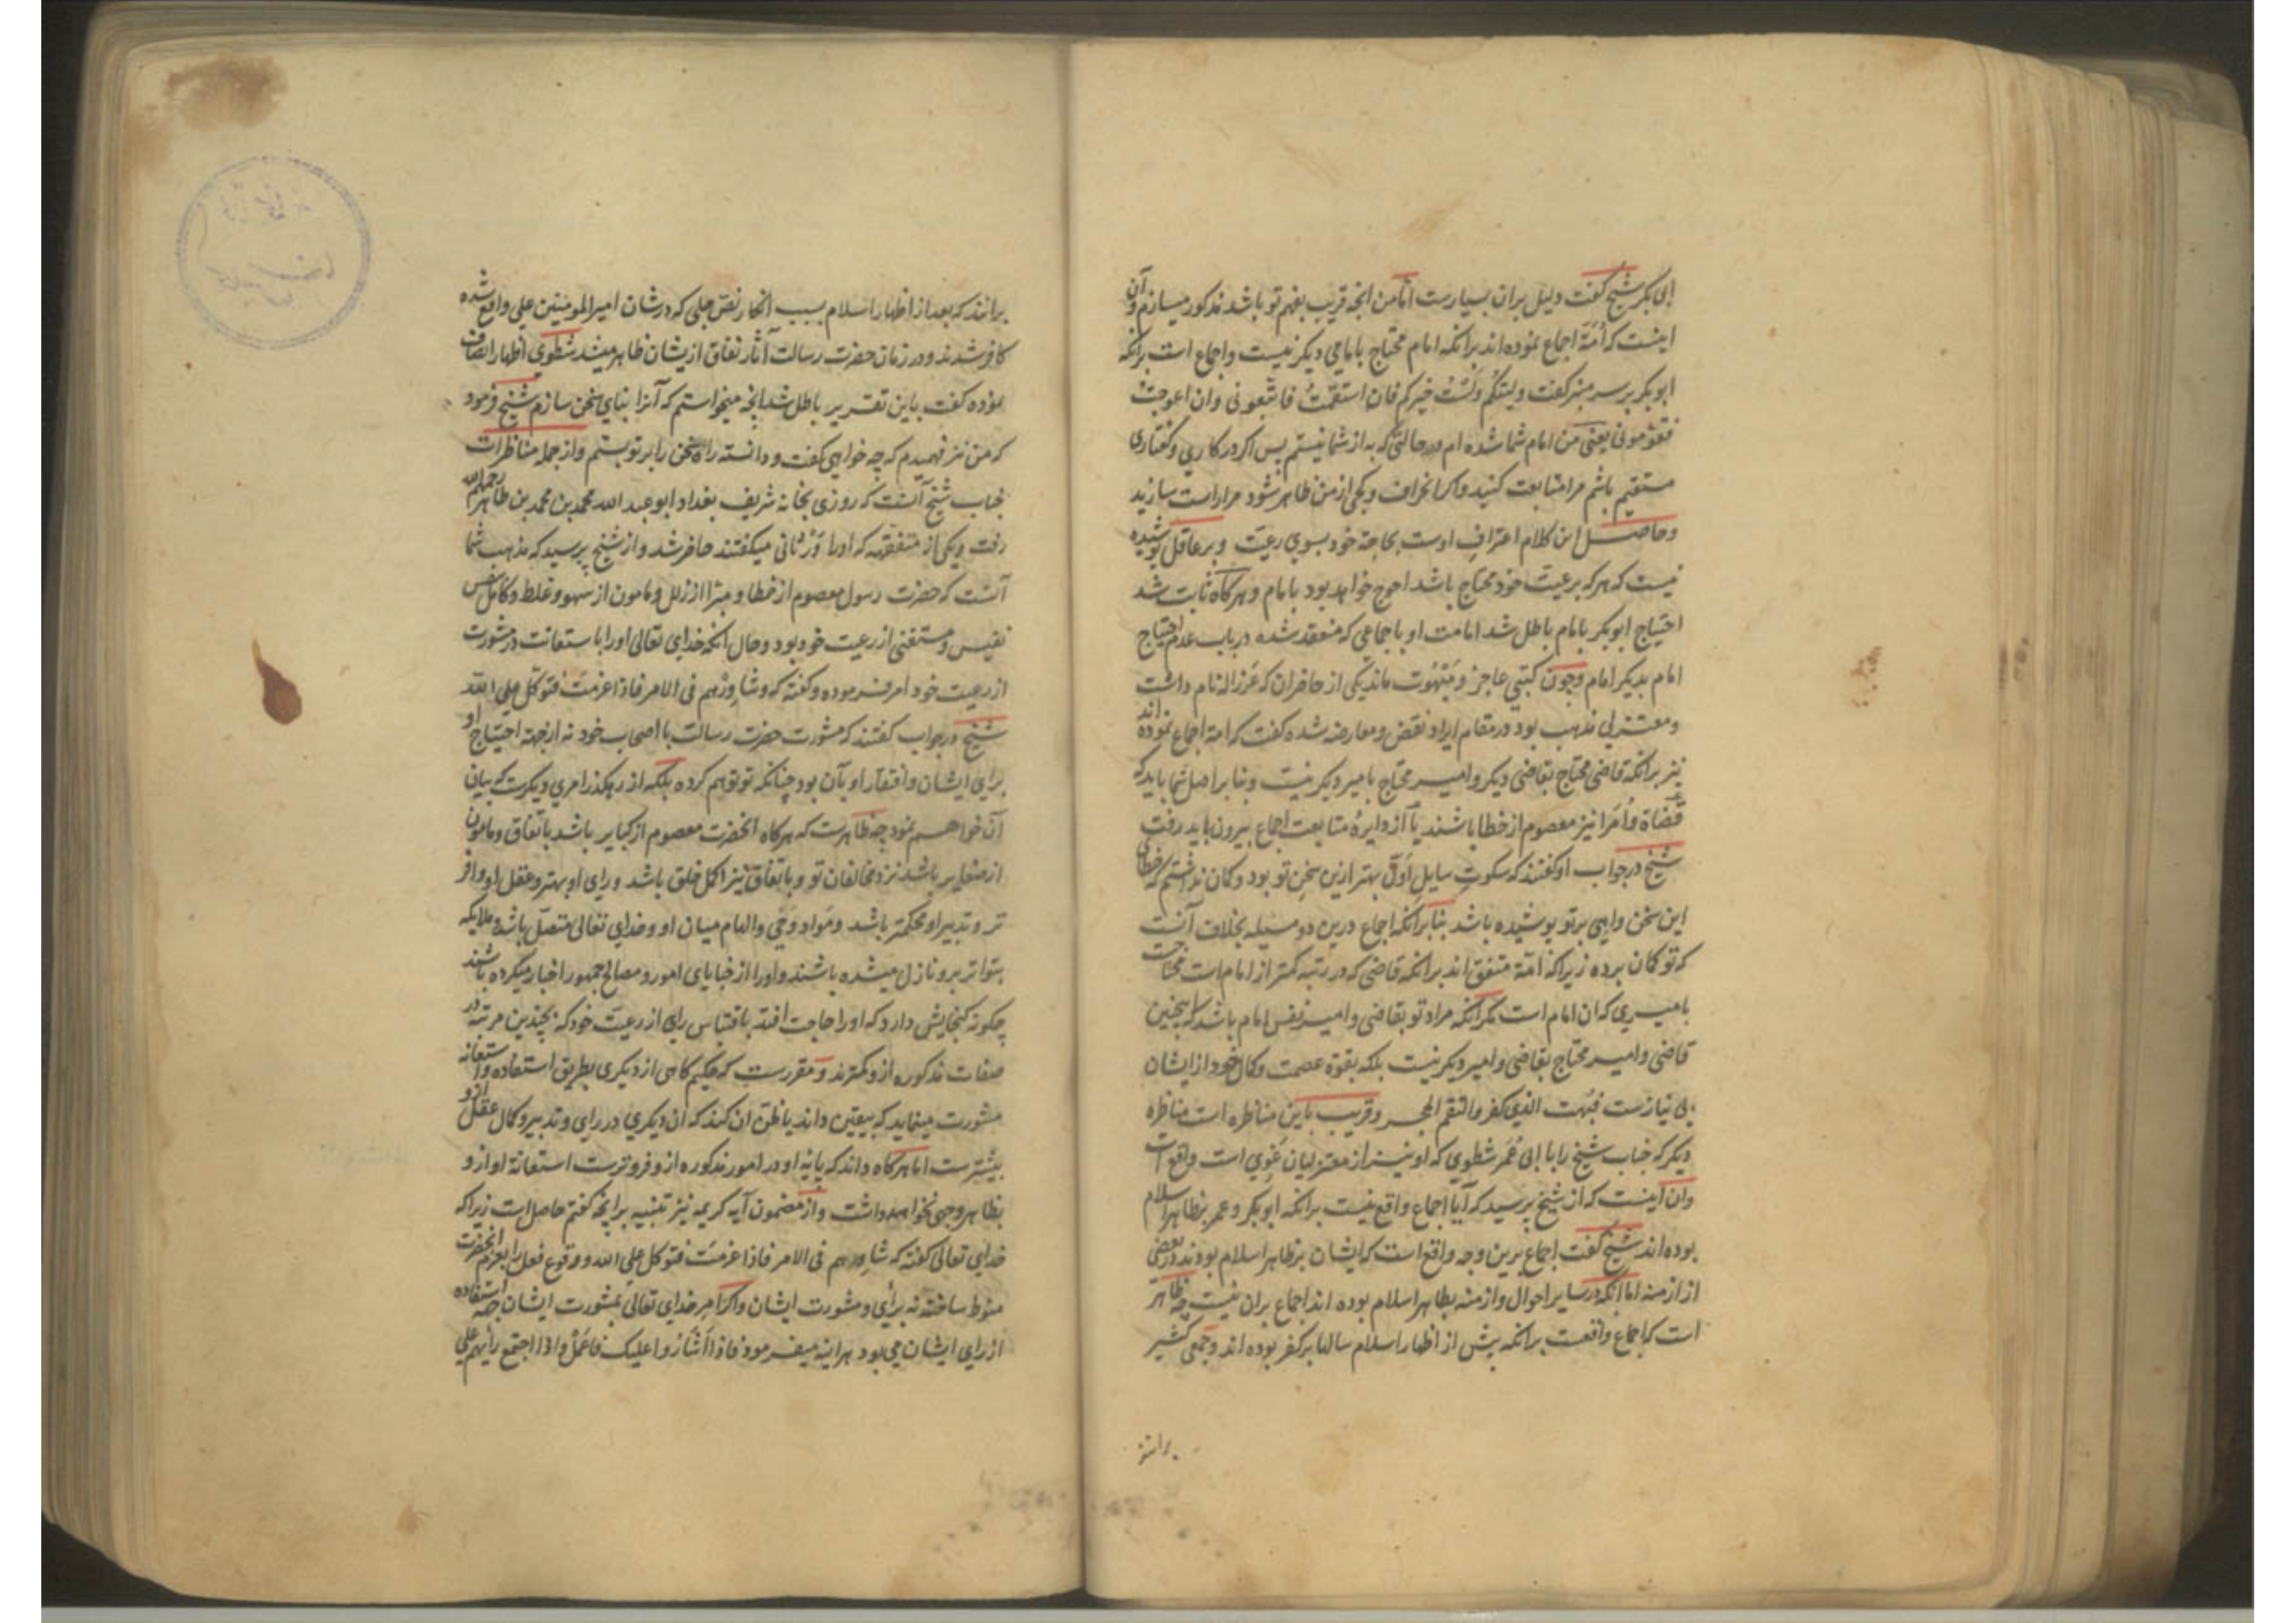 ابی بکر شیخ گفت دلیل بران بسیارست اما من انچه قریب بفهم تو باشد مذکور میسازم و آن
اینست که اُمّة اجماع نموده اند برانکه امام محتاج بامامی دیگر نیست و اجماع است برانکه
ابوبکر بر سر منبر گفت ولیتکُم ولستُ خیرکم فان استقمتُ فاتّبعونی وان اعوججتُ
فقوّمونی یعنی من امام شما شده ام در حالتی که به از شما نیستم پس اکر در کاری و گفتاری
مستقیم باشم مرا متابعت کنید و اکر انحراف و کجی از من ظاهر شود مرا راست سازید
و حاصل این کلام اعتراف اوست بحاجة خود بسوی رعیّت و بر عاقل پوشیده
نیست که هر که برعیت خود محتاج باشد احوج خواهد بود بامام و هرکاه ثابت شد
احتیاج ابوبکر بامام باطل شد امامت او باجماعی که منعقد شده در باب عدم احتیاج
امام بدیکر امام و چون کتبی عاجز و مَبْهُوت ماند یکی از حاضران که عَرزاله نام داشت
و معتزلی مذهب بود در مقام ایراد نقض و معارضه شده گفت که امة اجماع نموده اند
نیز برانکه قاضی محتاج بقاضی دیکر و امیر محتاج بامیر دیکر نیست و بنا بر اصل شما باید که
قضاة و اُمرا نیز معصوم از خطا باشند یا آز دایرهٔ متابعت اجماع بیرون باید رفت
شیخ در جواب او گفتند که سکوتِ سایلِ اوّل بهتر ازین سخن تو بود و کمان نداشتم که خطای
این سخن واهی بر تو پوشیده باشد بنا برانکه اجماع درین دو مسیله بخلاف آنست
که تو کمان برده زیرا که امّة متفق اند برانکه قاضی که در رتبه کمتر از امام است محتاجست
بامیری که ان امام است مکر انکه مراد تو بقاضی و امیر نفس امام باشد که اینچنین
قاضی و امیر محتاج بقاضی و امیر دیکر نیست بلکه بقوة عصمت و کمال خود از ایشان
بی نیازست فبُهت الذی کفر والتقم الحجر و قریب باین مناظره است مناظره
دیکر که جناب شیخ را با ابی عُمَر شطوی که او نیز از معتزلیان غَوی است واقع است
و ان اینست که از شیخ پرسید که آیا اجماع واقع نیست برانکه ابوبکر و عمر بظاهر اسلام
بوده اند شیخ گفت اجماع برین وجه واقع است که ایشان بظاهر اسلام بودند در بعضی
از ازمنه اما انکه در سایر احوال و ازمنه بظاهر اسلام بوده اند اجماع بران نیست چه ظاهر
است که اجماع واقعست برانکه پیش از اظهار اسلام سالها بر کفر بوده اند و جمعی کثیر
برانند
برانند که بعد از اظهار اسلام بسبب انکار نصّ جلی که در شان امیر المومنین علی واقع شده
کافر شدند و در زمان حضرت رسالت آثار نفاق ازیشان ظاهر میشد شطوی اظهار انصاف
نموده گفت باین تقریر باطل شد انچه میخواستم که آنرا بنای سخن سازم شیخ فرمود
که من نیز فهمیدم که چه خواهی گفت و دانسته راه سخن را بر تو بستم و از جمله مناظرات
جناب شیخ آنست که روزی بخانه شریف بغداد ابو عبد الله محمد بن محمد بن طاهر رحمهم الله
رفت و یکی از متفقهه که اورا وَرْثانی میکفتند حاضر شد و از شیخ پرسید که مذهب شما
آنست که حضرت رسول معصوم از خطا و مبرّا از زلل و مامون از سهو و غلط و کامل بنفس
نفیس و مستغنی از رعیت خود بود و حال انکه خدای تعالی اورا باستعانت در مشورت
از رعیت خود امر فرموده و گفته که وشاوِرْهم فی الامر فاذا عزمتَ فتوکل علی الله
شیخ در جواب گفتند که مشورت حضرت رسالت با اصحاب خود نه از جهة احتیاج او
برای ایشان و افتقار او بآن بود چنانکه تو توهم کرده بلکه از رهکذر امری دیکرست که بیان
آن خواهم نمود چه ظاهرست که هرکاه انحضرت معصوم از کبایر باشد باتفاق و مامون
از صغایر باشد نزد مخالفان تو و باتفاق نیز اکمل خلق باشد و رای او بهتر و عقل او وافر
تر و تدبیر او محکمتر باشد و مَواد وَحْی و الهام میان او و خدای تعالی متصل باشد و ملایکه
بتواتر برو نازل میشده باشند و اورا از خبایای امور و مصالح جمهور اخبار میکرده باشند
چکونه کنجایش دارد که اورا حاجت افتد باقتباس رای از رعیّت خود که بچندین مرتبه در
صفات مذکوره از و کمترند و مقررست که حکیم کاهی از دیکری بطریق استفاده و استعانه
مشورت مینماید که بیقین داند یا ظن ان کند که ان دیکری در رای و تدبیر و کمال عقل ازو
بیشترست اما هرکاه داند که پایهٔ او در امور مذکوره ازو فروترست استعانة او ازو
بظاهر وجهی نخواهد داشت و از مضمون آیه کریمه نیز تنبیه برانچه گفتم حاصل است زیرا که
خدای تعالی گفته که شاوِرهم فی الامر فاذا عزمتَ فتوکل علی الله و وقوع فعل را بعزم انحضرت
منوط ساخته نه برأی و مشورت ایشان و اکر امر خدای تعالی بمشورت ایشان جهة استفاده
از رای ایشان می بود هراینه میفرمود فاذا اَشارُوا علیک فاعمَلْ و اذا اجتمع رایهم علی